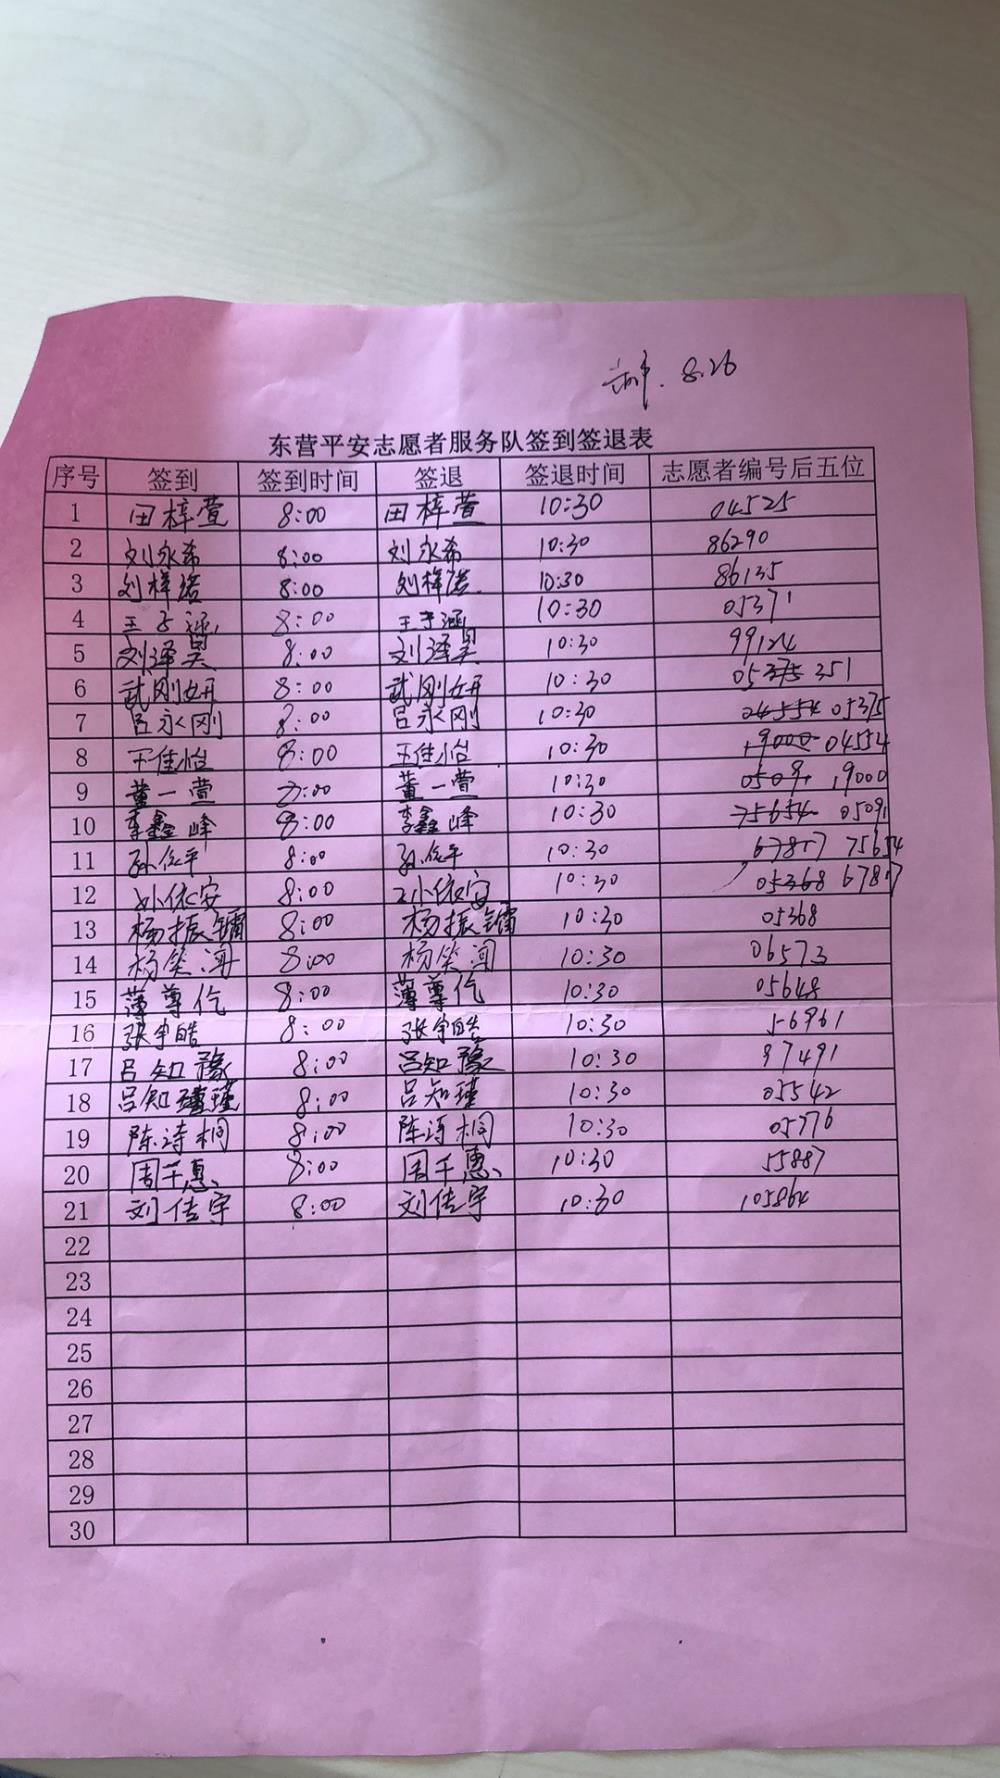 8.26
东营平安志愿者服务队签到签退表
序号 签到 签到时间 签退 签退时间 志愿者编号后五位
1 田梓萱 8:00 田梓萱 10:30 04525
2 刘永希 8:00 刘永希 10:30 86290
3 刘梓诺 8:00 刘梓诺 10:30 86135
4 王子涵 8:00 王子涵 10:30 05371
5 刘泽昊 8:00 刘泽昊 10:30 99124
6 武刚妍 8:00 武刚妍 10:30 05375 351
7 吕永刚 8:00 吕永刚 10:30 04554 05375
8 王佳怡 8:00 王佳怡 10:30 19000 04554
9 董一萱 8:00 董一萱 10:30 05091 19000
10 李鑫峰 8:00 李鑫峰 10:30 75654 05091
11 孙依平 8:00 孙依平 10:30 67807 75654
12 孙依安 8:00 孙依安 10:30 05368 67807
13 杨振镛 8:00 杨振镛 10:30 05368
14 杨笑闻 8:00 杨笑闻 10:30 06573
15 薄尊 8:00 薄尊 10:30 05648
16 张宇皓 8:00 张宇皓 10:30 56961
17 吕知豫 8:00 吕知豫 10:30 97491
18 吕知瑾 8:00 吕知瑾 10:30 05542
19 陈诗桐 8:00 陈诗桐 10:30 05776
20 周千惠 8:00 周千惠 10:30 55887
21 刘佳宇 8:00 刘佳宇 10:30 105864
22
23
24
25
26
27
28
29
30